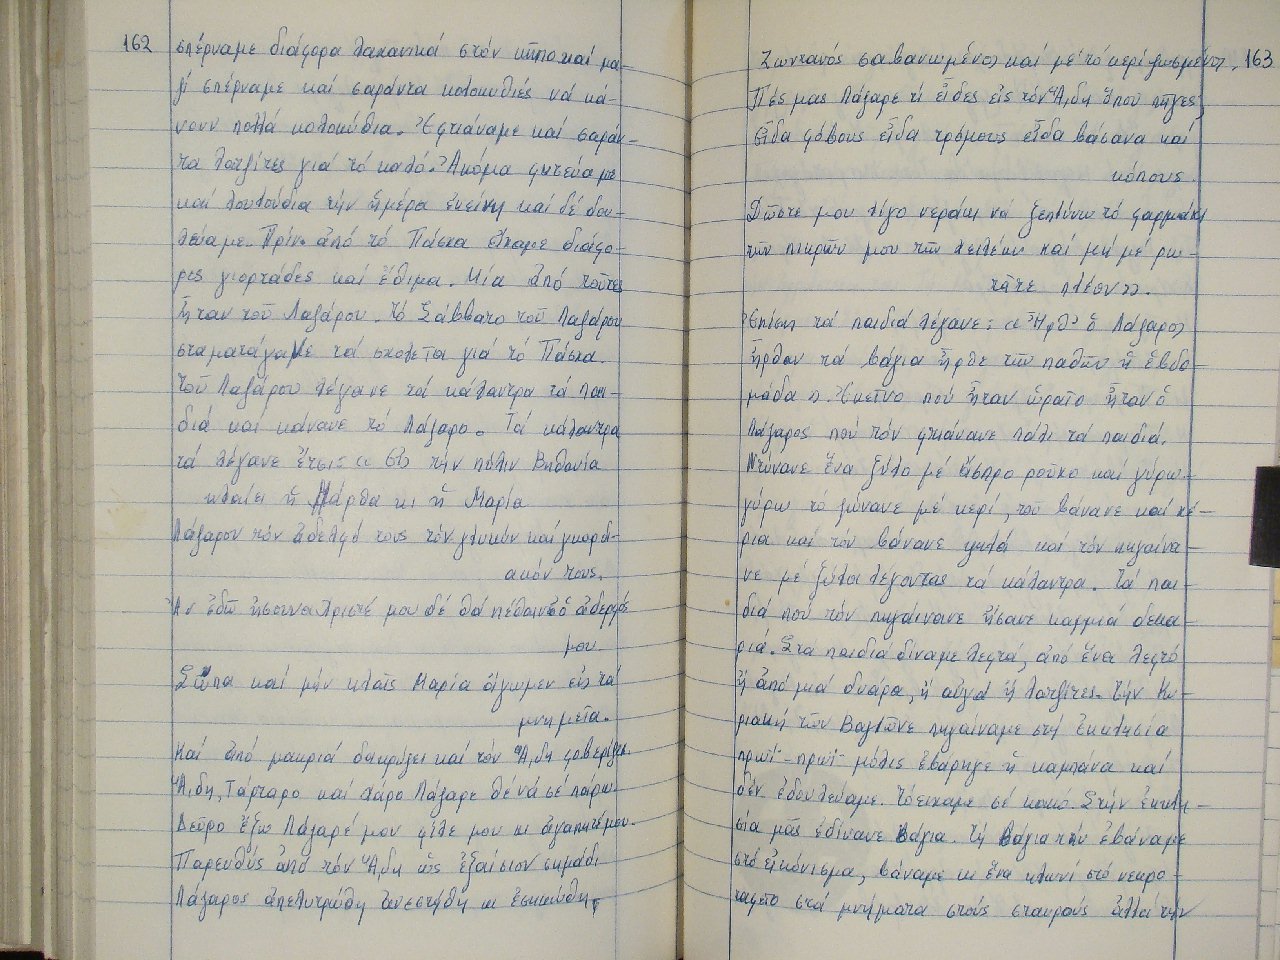 162
σπέρναμε διάφορα λαχανικά στόν κῆπο καί μα-
ζί σπέρναμε καί σαράντα κολοκυθιές νά κά-
νουν πολλά κολοκύθια. Ἐφτιάναμε καί σαράν-
τα λαζίτες γιά τό καλό. Ἀκόμα φυτεύαμε
καί λουλούδια τήν ἡμέρα ἐκείνη καί δέ δου-
λεύαμε. Πρίν ἀπό τό Πάσχα εἴχαμε διάφο-
ρες γιορτάδες καί ἔθιμα. Μία ἀπό τοῦτες
ἦταν τοῦ Λαζάρου. Τό Σάββατο τοῦ Λαζάρου
σταματάγανε τά σχολεῖα γιά τό Πάσχα.
Τοῦ Λαζάρου λέγανε τά κάλαντρα τά παι-
διά καί κάνανε τό Λάζαρο. Τά κάλαντρα
τά λέγανε ἔτσι: « Εἰς τήν πόλιν Βηθανία
κλαίει ἡ Μάρθα κι ἡ Μαρία
Λάζαρον τόν ἀδελφό τους τόν γλυκύν καί γκαρδι-
ακόν τους.
Ἄν ἐδῶ ἤσουνα Χριστέ μου δέ θά πέθαινε ὁ ἀδερφός
μου.
Σώπα καί μήν κλαῖς Μαρία ἄγωμεν εἰς τά
μνημεῖα.
Καί ἀπό μακριά δακρύζει καί τόν Ἅδη φοβερίζει.
Ἅδη, Τάρταρο καί Χάρο Λάζαρε θέ νά σέ πάρω.
Δεῦρο ἔξω Λάζαρέ μου φίλε μου κι ἀγαπητέ μου.
Παρευθύς ἀπό τόν Ἅδη ὡς ἐξαίσιον σημάδι
Λάζαρος ἀπελυτρώθη ἀνεστήθη κι ἐσηκώθη,
Ζωντανός σαβανωμένος καί μέ τό κερί ζωσμένος. 163
Πές μας Λάζαρε τί εἶδες εἰς τόν Ἅδη ὅπου πῆγες
Εἶδα φόβους εἶδα τρόμους εἶδα βάσανα καί
κόπους.
Δῶστε μου λίγο νεράκι νά ξεπλύνω τό φαρμάκι
τῶν πικρῶν μου τῶν χειλέων καί μή μέ ρω-
τᾶτε πλέον».
Ἐπίσης τά παιδιά λέγανε: « Ἦρθ' ὁ Λάζαρος
ἦρθαν τά βάγια ἦρθε τῶν παθῶν ἡ ἑβδο-
μάδα ». Ἐκεῖνο πού ἦταν ὡραῖο ἦταν ὁ
Λάζαρος πού τόν φτιάνανε πάλι τά παιδιά.
Ντύνανε ἕνα ξύλο μέ ἄσπρο ροῦχο καί γύρω-
γύρω τό ζώνανε μέ κερί, τοῦ βάνανε καί χέ-
ρια καί τόν βάνανε ψηλά καί τόν πηγαίνα-
νε μέ ξύλα λέγοντας τά κάλαντρα. Τά παι-
διά πού τόν πηγαίνανε ἤσανε καμμιά δεκα-
ριά. Στά παιδιά δίναμε λεφτά, ἀπό ἕνα λεφτό
ἤ ἀπό μιά δυάρα, ἤ αὐγά ἤ λαζίτες. Τήν Κυ-
ριακή τῶν Βαγιῶνε πηγαίναμε στή ἐκκλησία
πρωΐ-πρωΐ μόλις ἐβάρηγε ἡ καμπάνα καί
δέν ἐδουλεύαμε. Τό εἴχαμε σέ κακό. Στήν ἐκκλη-
σία μᾶς ἐδίνανε βάγια. Τή βάγια τήν ἐβάναμε
στό εἰκόνισμα, βάναμε κι ἕνα κλωνί στό νεκρο-
ταφεῖο στά μνήματα στούς σταυρούς ἀλλά τήν